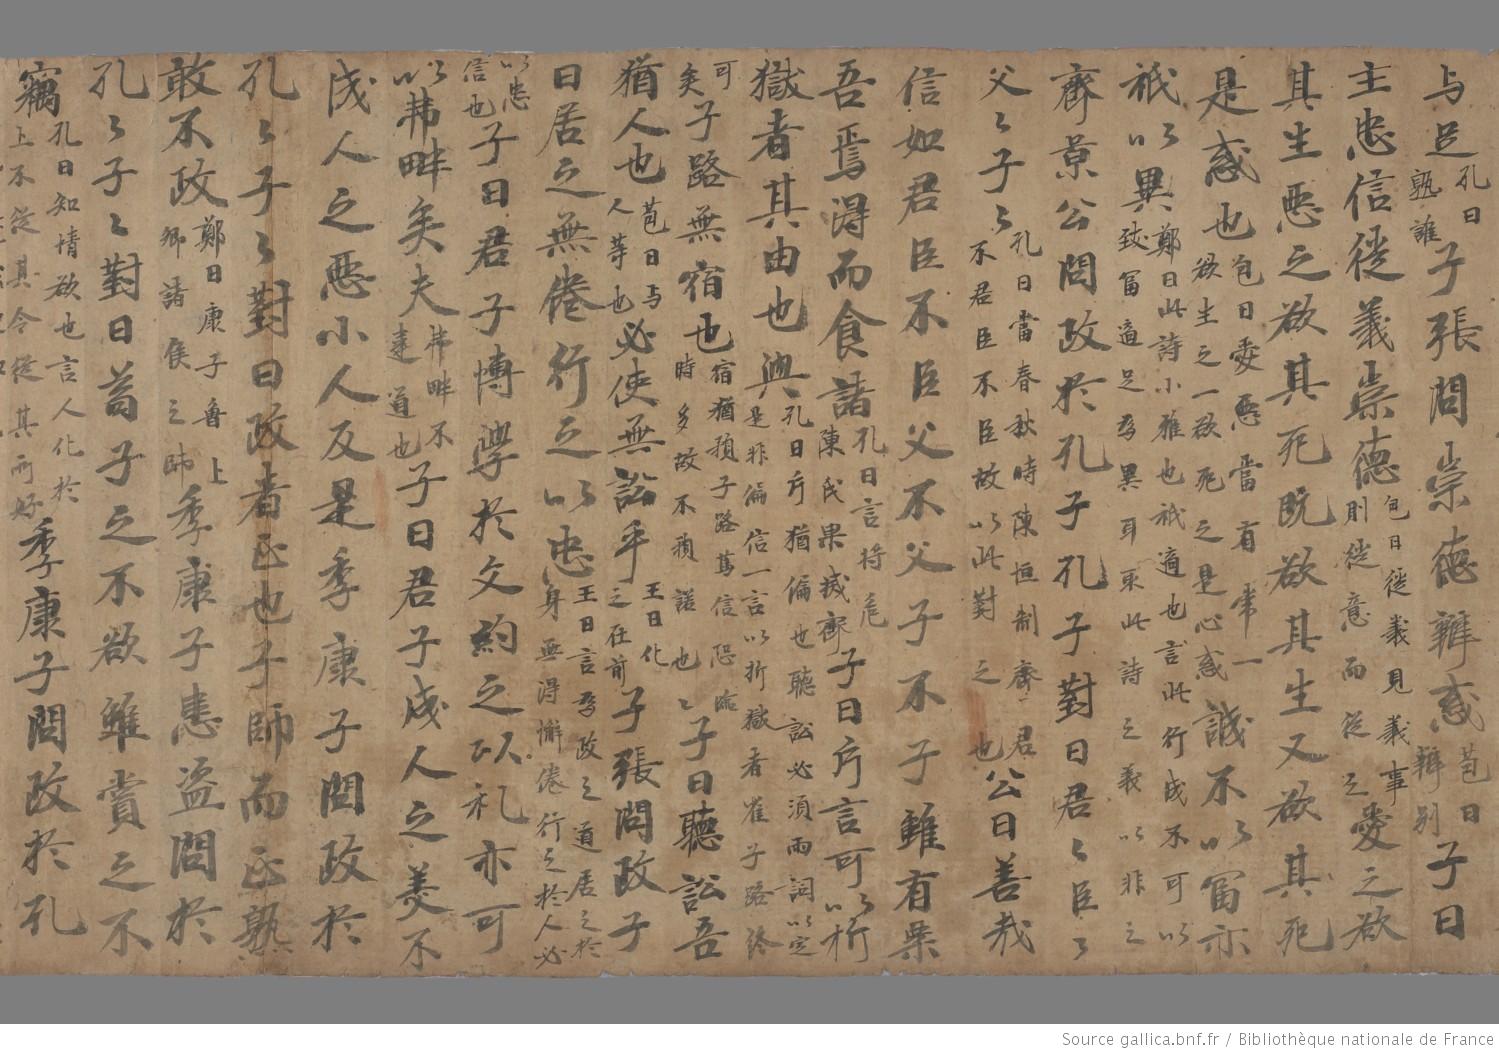 与足孔曰孰誰子張問崇德辯惑苞曰辯別子曰
主忠信徙義崇德包曰徙義見義事則徙意而從之愛之欲
其生惡之欲其死既欲其生又欲其死
是惑也包曰愛惡當有常一欲生之一欲死之是心惑誠不以富亦
祇以異鄭曰此詩小雅也祇適也言此行成不可以致富適足為異耳取此詩之義以非之
齊景公問政於孔子孔子對曰君〻臣〻
父〻子〻孔曰當春秋時陳恒制齊君不君臣不臣故以此對之也公曰善哉
信如君不君臣不臣父不父子不子雖有粟
吾焉得而食諸孔曰言將危陳氏果滅齊子曰片言可以折
獄者其由也與孔曰片猶偏也聽訟必須兩詞以定是非偏信一言以折獄者雀子路終
可矣子路無宿也宿猶預子路篤信恐臨時多故不預諾也〻子曰聽訟吾
猶人也苞曰与人等也必使無訟乎王曰化之在前子張問政子
曰居之無倦行之以忠王曰言為政之道居之於身無得懈倦行之於人必
以忠信也子曰君子博學於文約之以礼亦可
以弗畔矣夫弗畔不違道也子曰君子成人之美不
成人之惡小人反是季康子問政於
孔〻子〻對曰政者正也子師而正孰
敢不政鄭曰康子魯上卿諸侯之師季康子患盜問於
孔〻子〻對曰苟子之不欲雖賞之不
竊孔曰知情欲也言人化於上不從其令從其所好季康子問政於孔
Source gallica.bnf.fr / Bibliothèque nationale de France